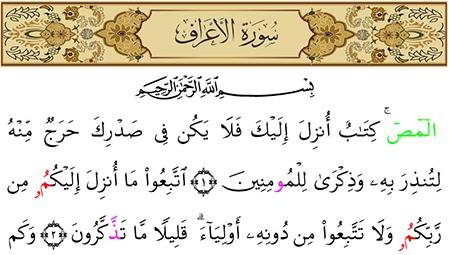 سُورَةُ الأَعْرَافِ
بِسْمِ ٱللَّهِ ٱلرَّحْمَٰنِ ٱلرَّحِيمِ
الٓمٓصٓ ۚ كِتَٰبٌ أُنزِلَ إِلَيْكَ فَلَا يَكُن فِى صَدْرِكَ حَرَجٌ مِّنْهُ
لِتُنذِرَ بِهِۦ وَذِكْرَىٰ لِلْمُومِنِينَ ﴿١﴾ ٱتَّبِعُوا۟ مَا أُنزِلَ إِلَيْكُمُۥ مِن
رَّبِّكُمُۥ وَلَا تَتَّبِعُوا۟ مِن دُونِهِۦ أَوْلِيَآءَ ۗ قَلِيلًا مَّا تَذَّكَّرُونَ ﴿٢﴾ وَكَم